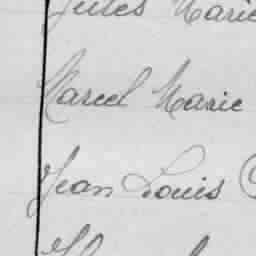 Jules Marie
Marcel Marie
Jean Louis